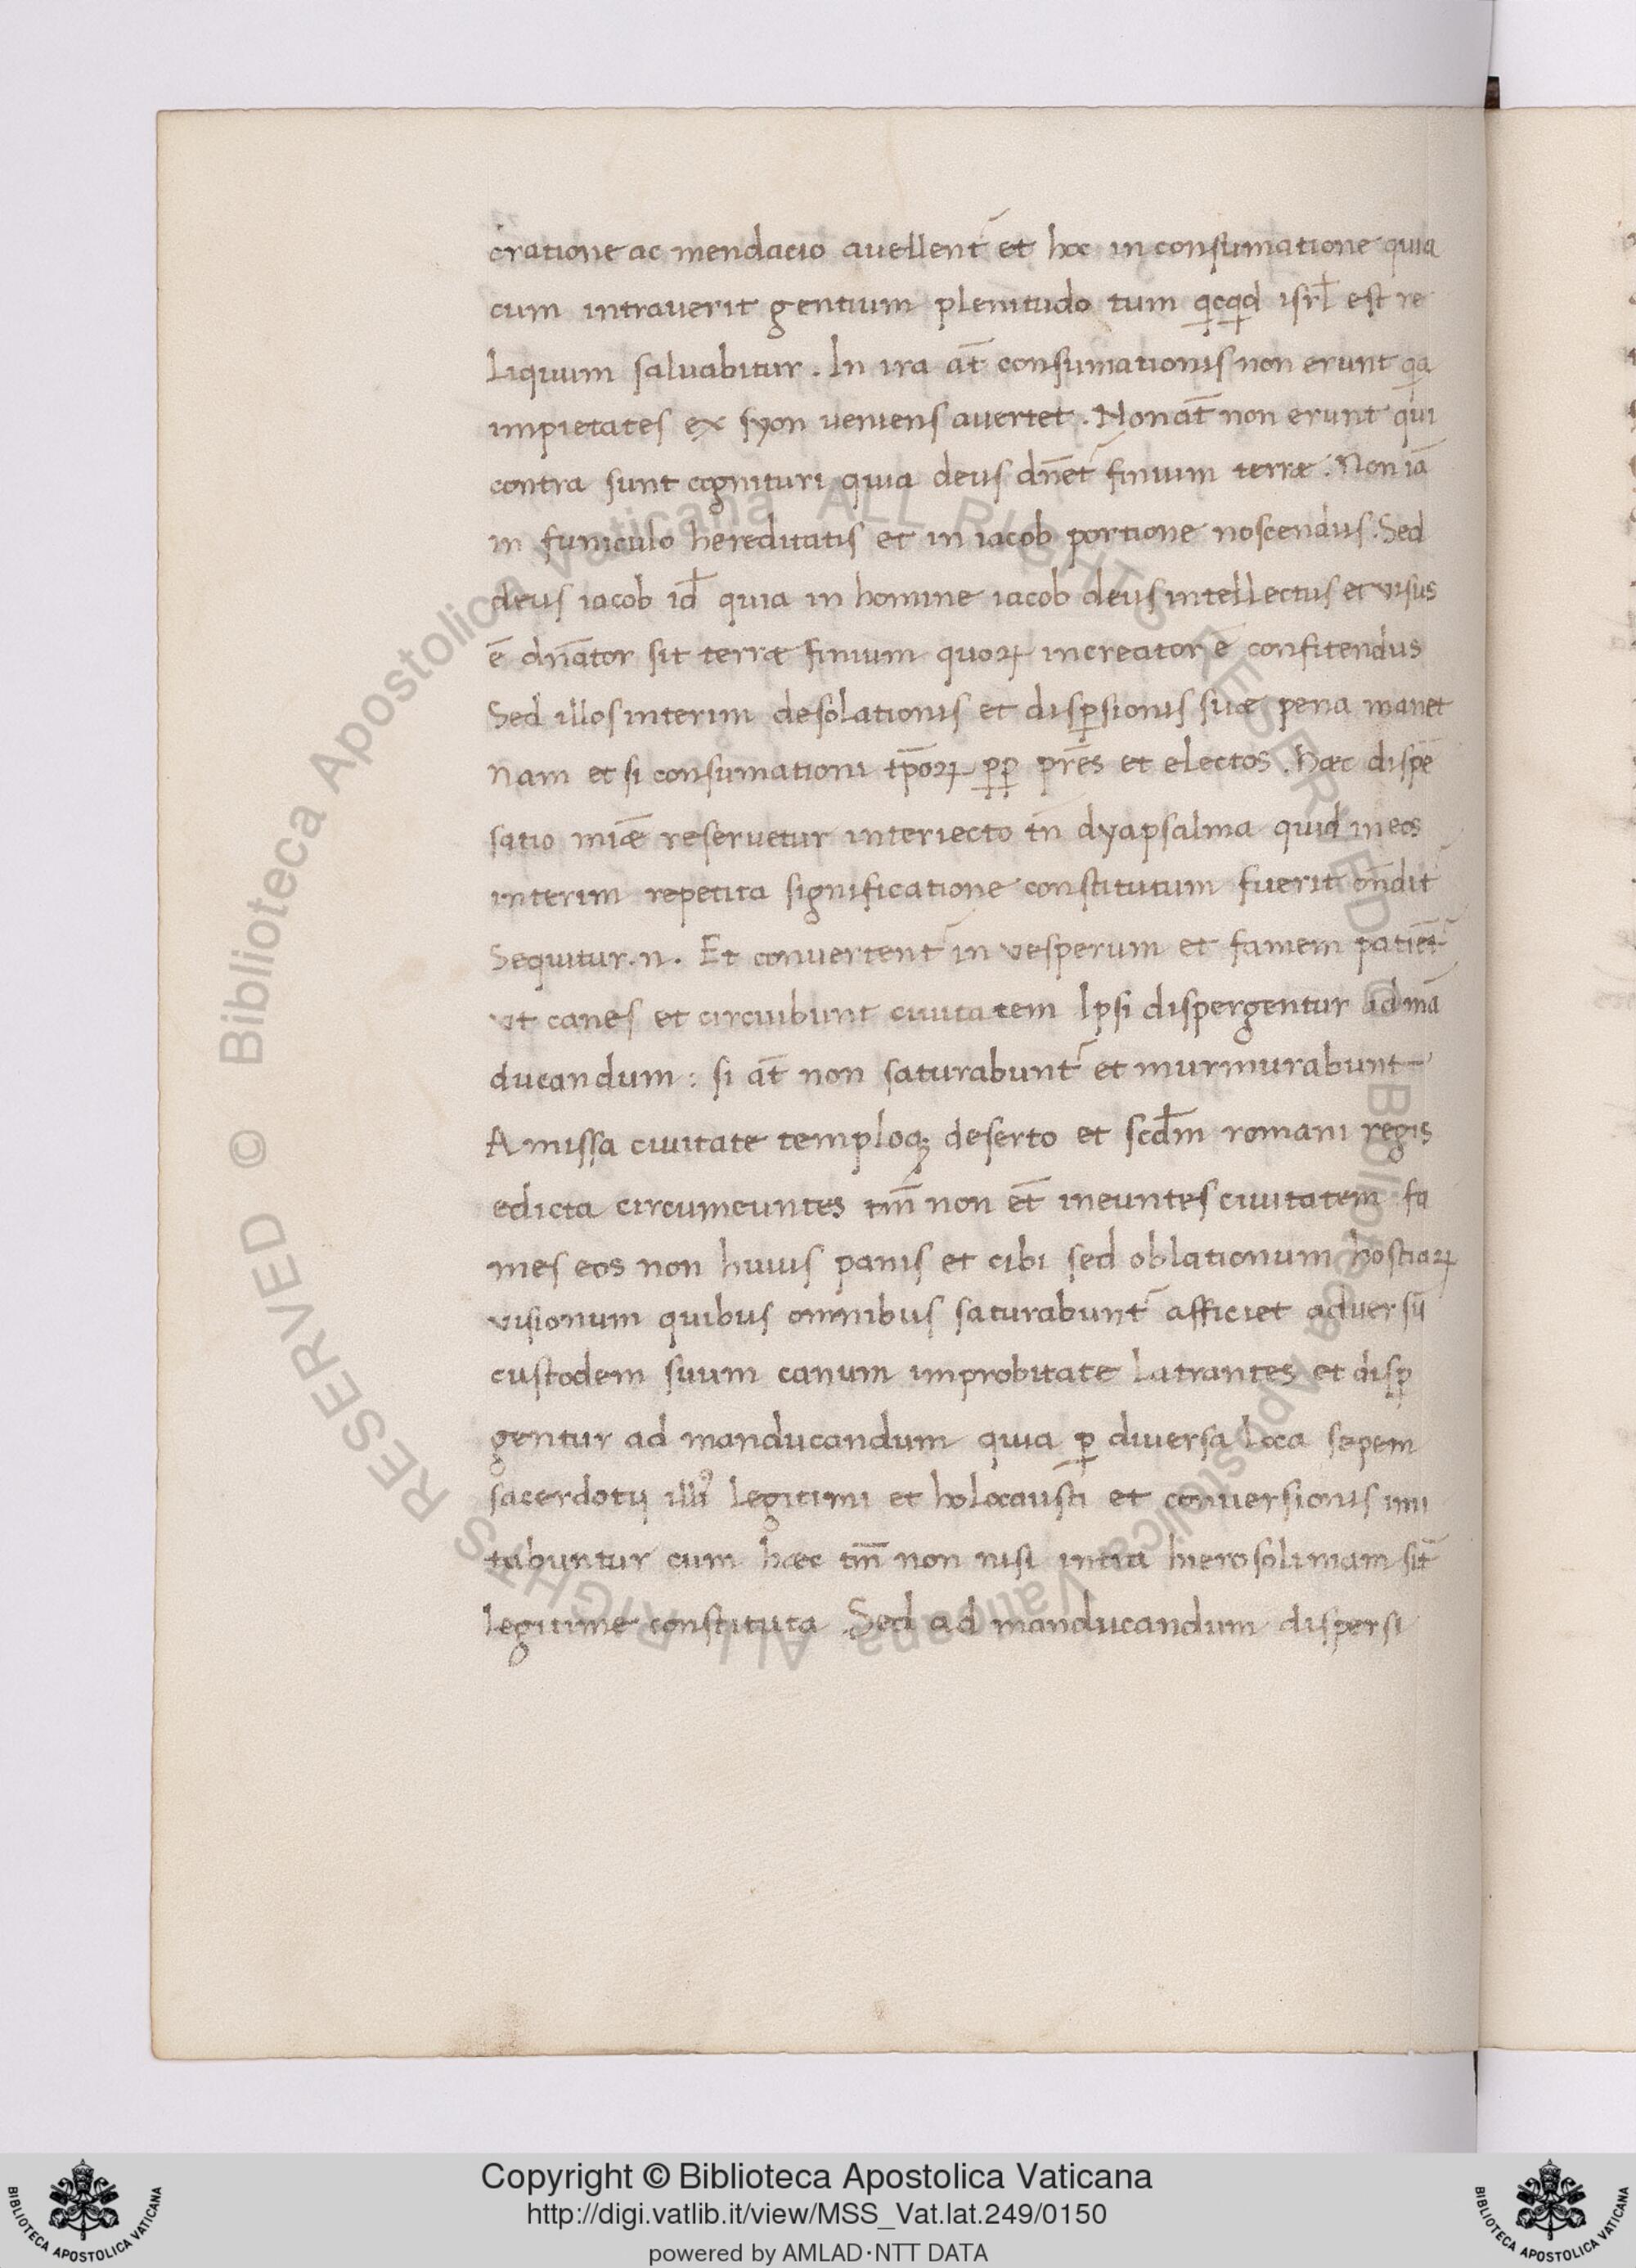 cratione ac mendacio auellent᷑ et hoc in consumatione quia
cum intrauerit gentium plenitudo tum qꝗcqꝗd isrl̄ est re
liquum saluabitur. In ira at̄ consumationis non erunt qa
impietates ex syon ueniens auertet. Non at̄ non erunt qui
contra sunt cognituri quia deus dn̄et᷑ finium terræ. Non iā
in funiculo hereditatis et in iacob portione noscendus. Sed
deus iacob id̄ quia in homine iacob deus intellectus et visus
ē dn̄ator sit terræ finium quoꝝ increator ē confitendus
Sed illos interim desolationis et disꝑsionis suæ pena manet
Nam et si consumationi tp̄oꝝ ꝑꝑ pr̄es et electos. Hæc dispē
satio miǣ reseruetur interiecto tn̄ dyapsalma quid in eos
interim repetita significatione constitutum fuerit on̄dit
Sequitur .n. Et conuertent᷑ in vesperum et famem patiēt᷑
vt canes et circuibunt ciuitatem Ipsi dispergentur ad mā
ducandum: si at̄ non saturabunt᷑ et murmurabunt
Amissa ciuitate temploqꝫ deserto et scd̄m romani regis
edicta circumeuntes tm̄ non et̄ ineuntes ciuitatem fa
mes eos non huius panis et cibi sed oblationum hostiaꝝ
visionum quibus omnibus saturabunt᷑ afficiet aduersū
custodem suum canum improbitate latrantes et disꝑ
gentur ad manducandum quia ꝑ diuersa loca sepem
sacerdotij illiꝰ legitimi et holocausti et conuersionis imi
tabuntur cum hæc tm̄ non nisi intra hierosolimam sit̄
legitime constituta Sed ad manducandum dispersi
© Biblioteca Apostolica Vaticana ALL RIGHTS RESERVED
© Biblioteca Apostolica Vaticana ALL RIGHTS RESERVED
Copyright © Biblioteca Apostolica Vaticana
http://digi.vatlib.it/view/MSS_Vat.lat.249/0150
powered by AMLAD·NTT DATA
BIBLIOTECA APOSTOLICA VATICANA
BIBLIOTECA APOSTOLICA VATICANA